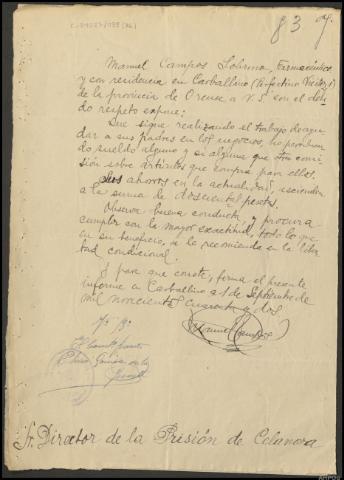 C-04027/099 (26)
83
Manuel Campos Sobrino, Farmacéutico
y con residencia en Carballino (Perfectino Viéitez,1)
de la provincia de Orense a V.S. con el debi
do respeto expone:
Que sigue realizando el trabajo de ayu
dar a sus padres en los negocios, no percibiendo
sueldo alguno y si alguna que otra comi
sión sobre artículos que compra para ellos.
Sus ahorros en la actualidad, ascienden
a la suma de doscientas pesetas.
Observa buena conducta, y procura
cumplir con la mayor exactitud, todo lo que
en su beneficio, se le recomienda en la liber
tad condicional.
Y para que conste, firma el presente
informe en Carballino a 1 de Septiembre de
mil novecientos cuarenta y dos
Manuel Campos
Vº Bº
El Comandante
Sr. Director de la Prisión de Celanova